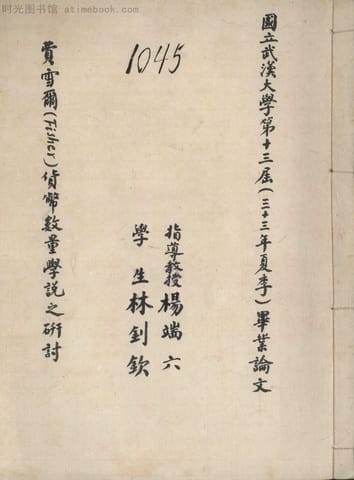 國立武漢大學第十三屆(三十三年夏季)畢業論文
指導教授楊端六
學生林釗欽
費雪爾(Fisher)貨幣數量學說之研討
1045
时光图书馆 atimebook.com